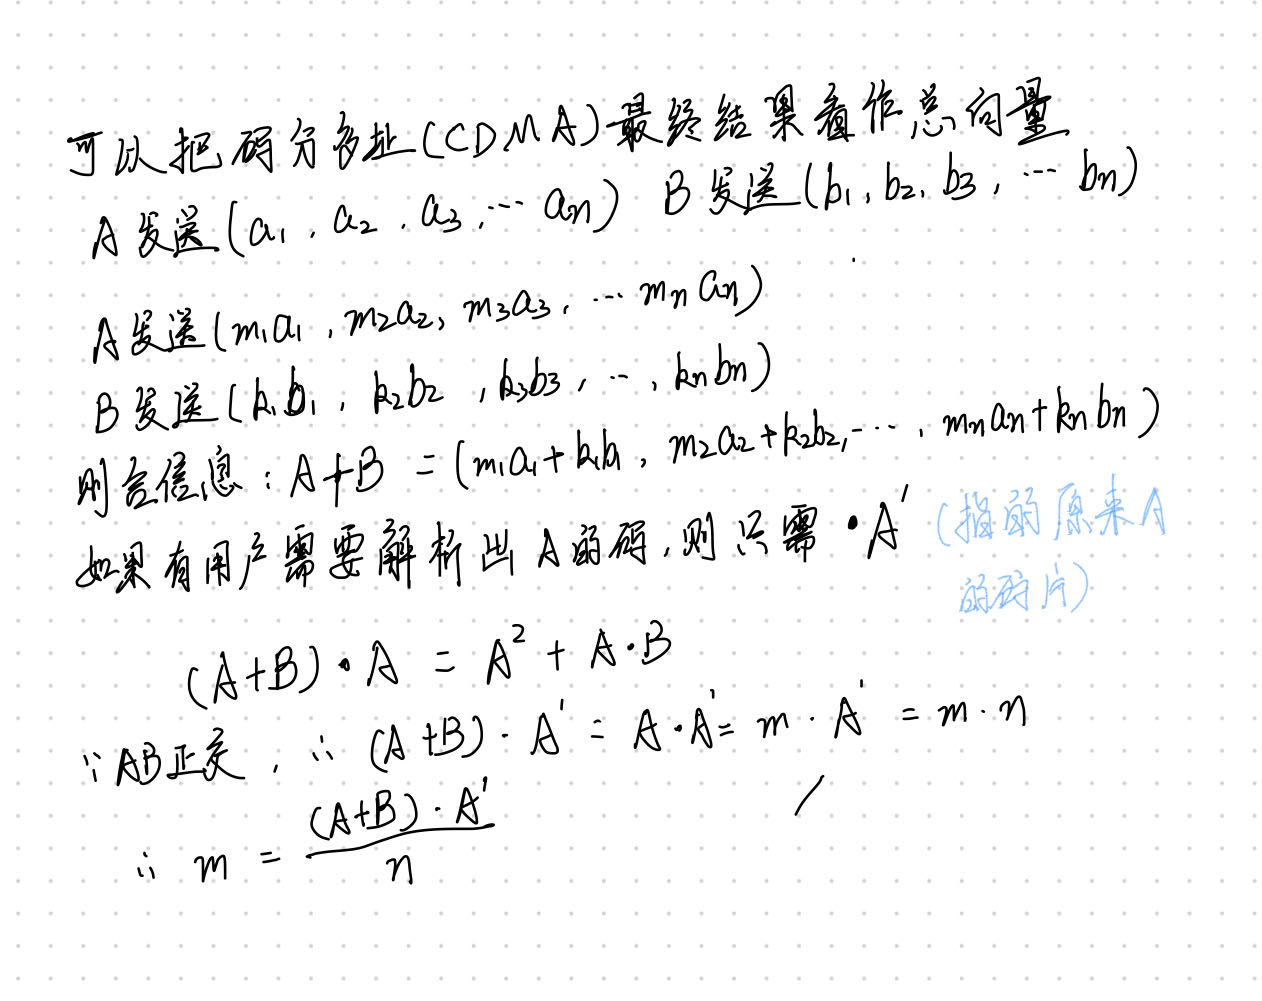 可以把码分多址(CDMA)最终结果看作总向量
A发送(a₁, a₂, a₃, … aₙ) B发送(b₁, b₂, b₃, … bₙ)
A发送(m₁a₁, m₂a₂, m₃a₃, … mₙaₙ)
B发送(k₁b₁, k₂b₂, k₃b₃, …, kₙbₙ)
则合信息: A+B = (m₁a₁+k₁b₁, m₂a₂+k₂b₂, …, mₙaₙ+kₙbₙ)
如果有用户需要解析出A的码,则只需 ·A' (指的原来A
的码片)
(A+B)·A = A² + A·B
∵AB正交, ∴ (A+B)·A' = A·A' = m·A' = m·n
∴ m = (A+B)·A' / n